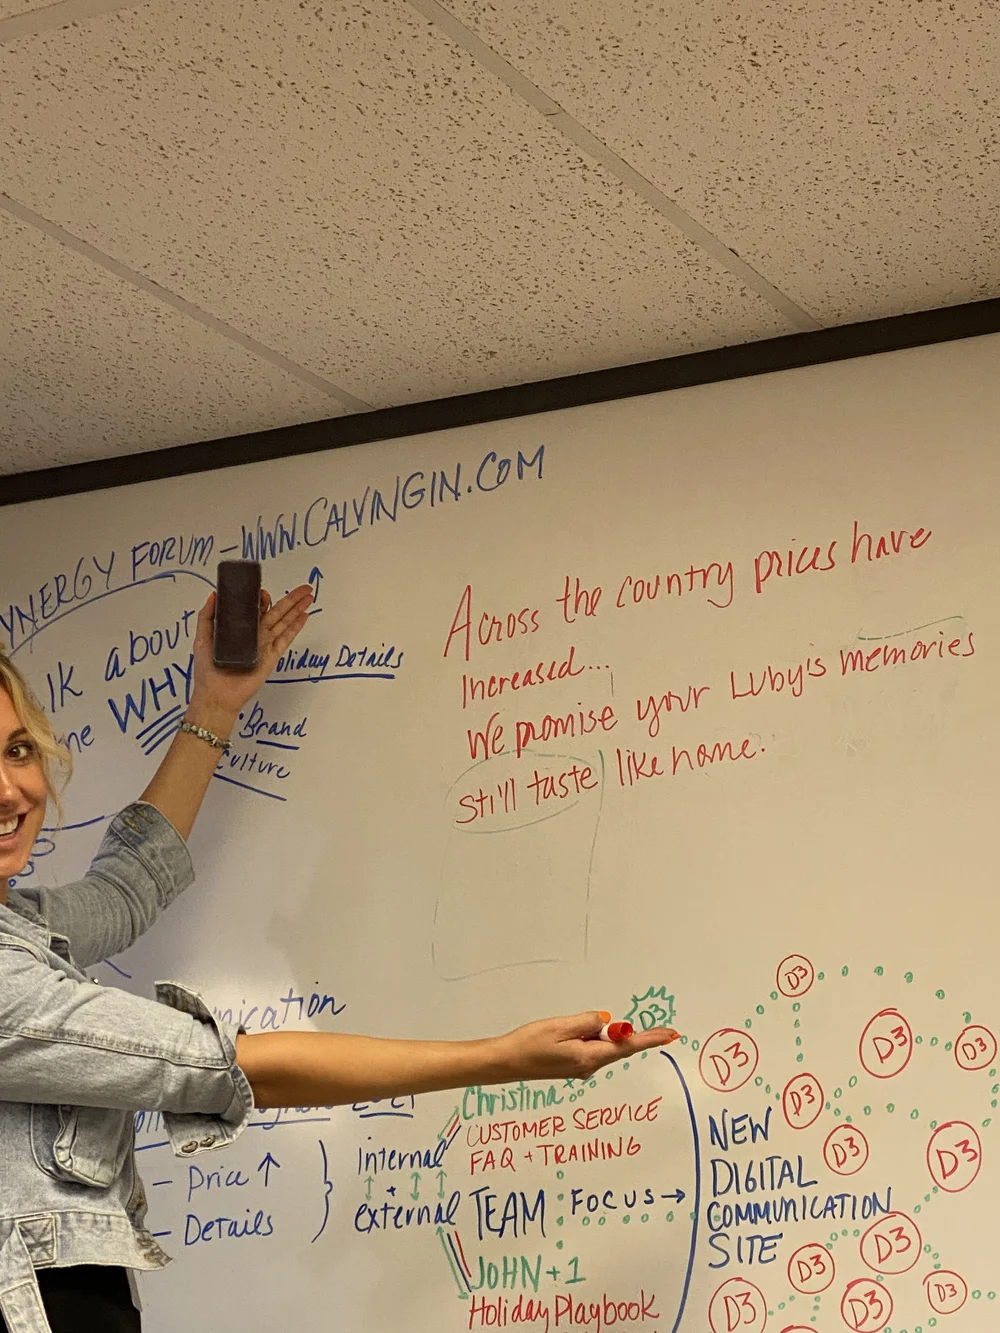 YNERGY FORUM - WWW.CALVINGIN.COM
lk about
ne WHY
oliday Details
· Brand
culture
Across the country prices have
Increased...
We promise your Luby's memories
still taste like home.
nication
- Price ↑
- Details
internal
+
external
Christina
CUSTOMER SERVICE
FAQ + TRAINING
TEAM FOCUS →
JOHN + 1
Holiday Playbook
NEW
DIGITAL
COMMUNICATION
SITE
D3
D3
D3
D3
D3
D3
D3
D3
D3
D3
D3
D3
D3